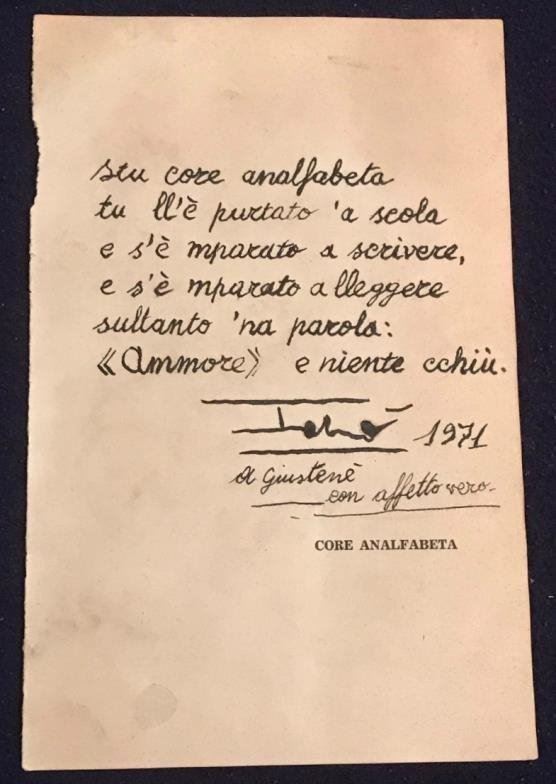 Stu core analfabeta
tu ll'è purtato 'a scola
e s'è mparato a scrivere,
e s'è mparato a lleggere
sultanto 'na parola:
«Ammore» e niente cchiù.
Totò 1971
A Giustenè
con affetto vero.
CORE ANALFABETA